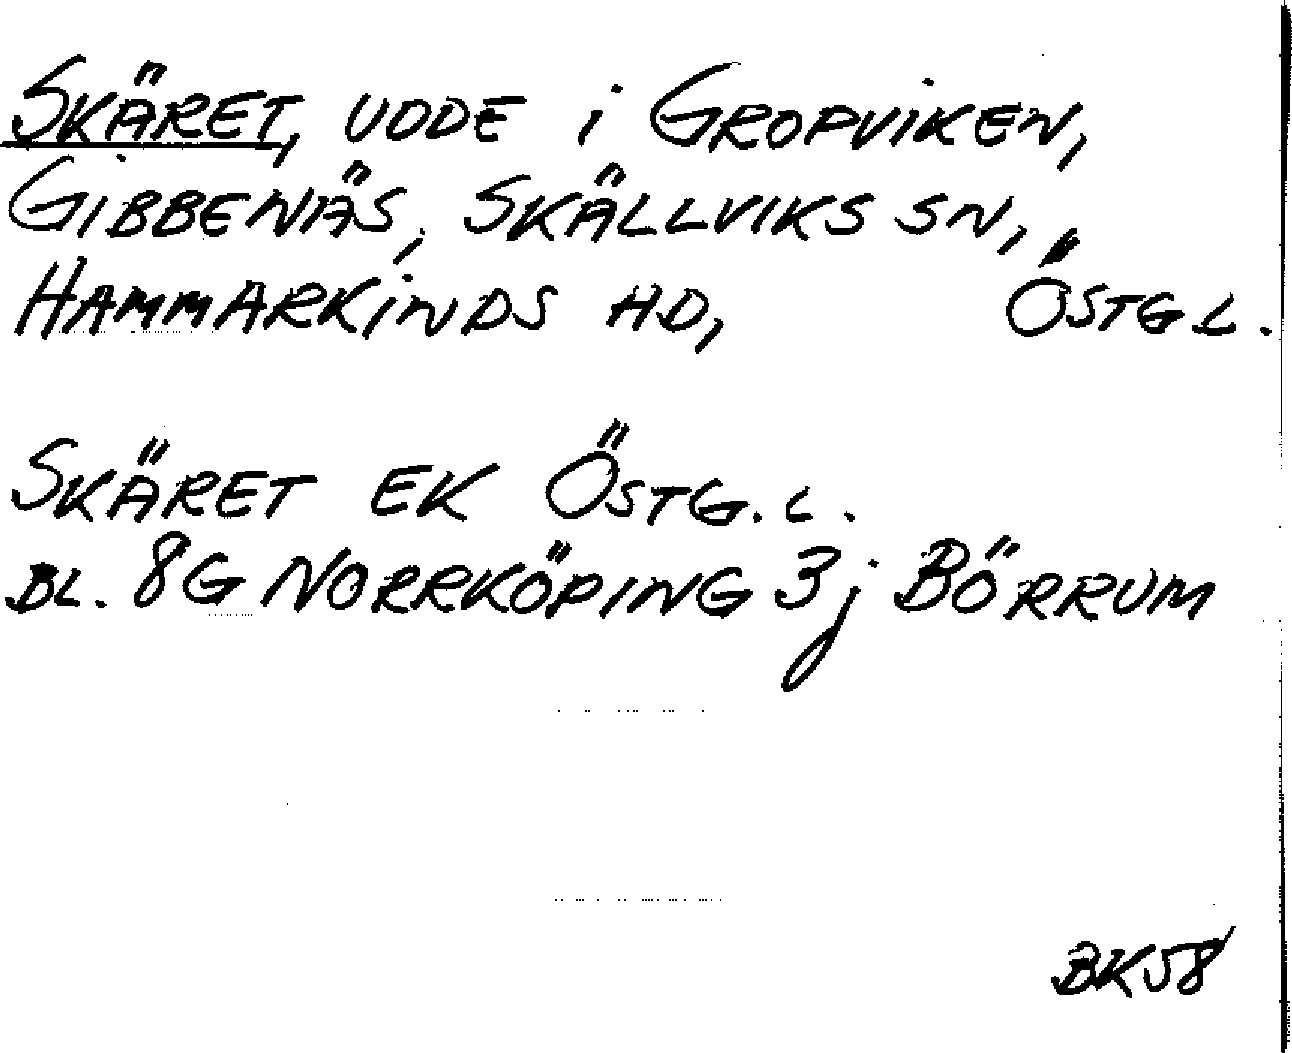 SKÄRET, UDDE i GROPVIKEN,
GIBBENÄS, SKÄLLVIKS SN,
HAMMARKINDS HD, ÖSTG L.
SKÄRET EK ÖSTG. L.
BL. 8G NORRKÖPING 3j BÖRRUM
BK58